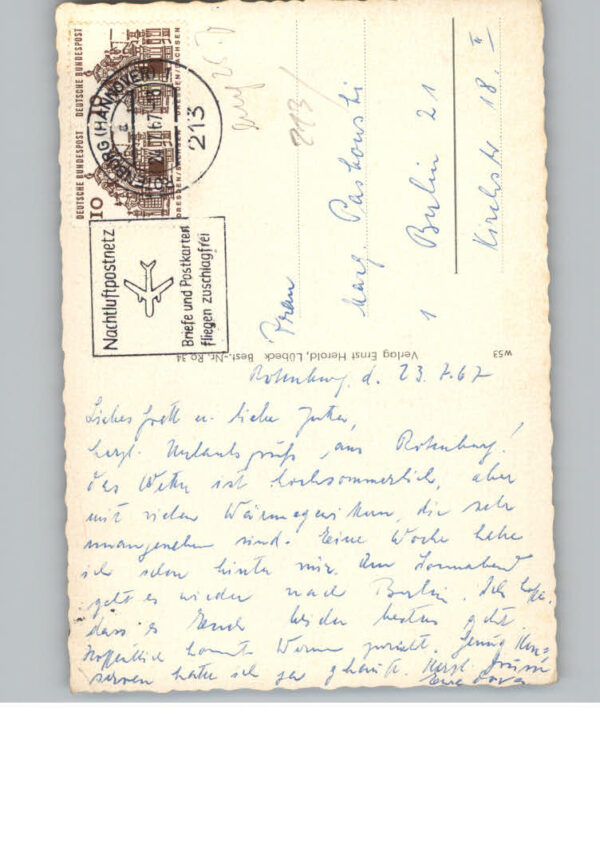 DEUTSCHE BUNDESPOST
DEUTSCHE BUNDESPOST
10
DRESDEN/SACHSEN
ROTENBURG (HANNOVER)
a
213
Nachtluftpostnetz
Briefe und Postkarten
fliegen zuschlagfrei
213
Frau
Marg. Paskowski
1 Berlin 21
Kirchstr 18. II
Verlag Ernst Herold, Lübeck Best.-Nr. Ro 34
W53
Rotenburg, d. 23.7.67
Liebes u. liebe Jutta,
herzl. Urlaubsgrüße aus Rotenburg!
Das Wetter ist hochsommerlich, aber
mit vielen Wärmegewittern, die sehr
unangenehm sind. Eine Woche habe
ich schon hinter mir. Am Sonnabend
geht es wieder nach Berlin. Ich hoffe,
dass es Euch beiden bestens geht.
Hoffentlich kommt zurecht. Genug Kon=
serven hatte ich ja. Herzl. Grüsse
Eure